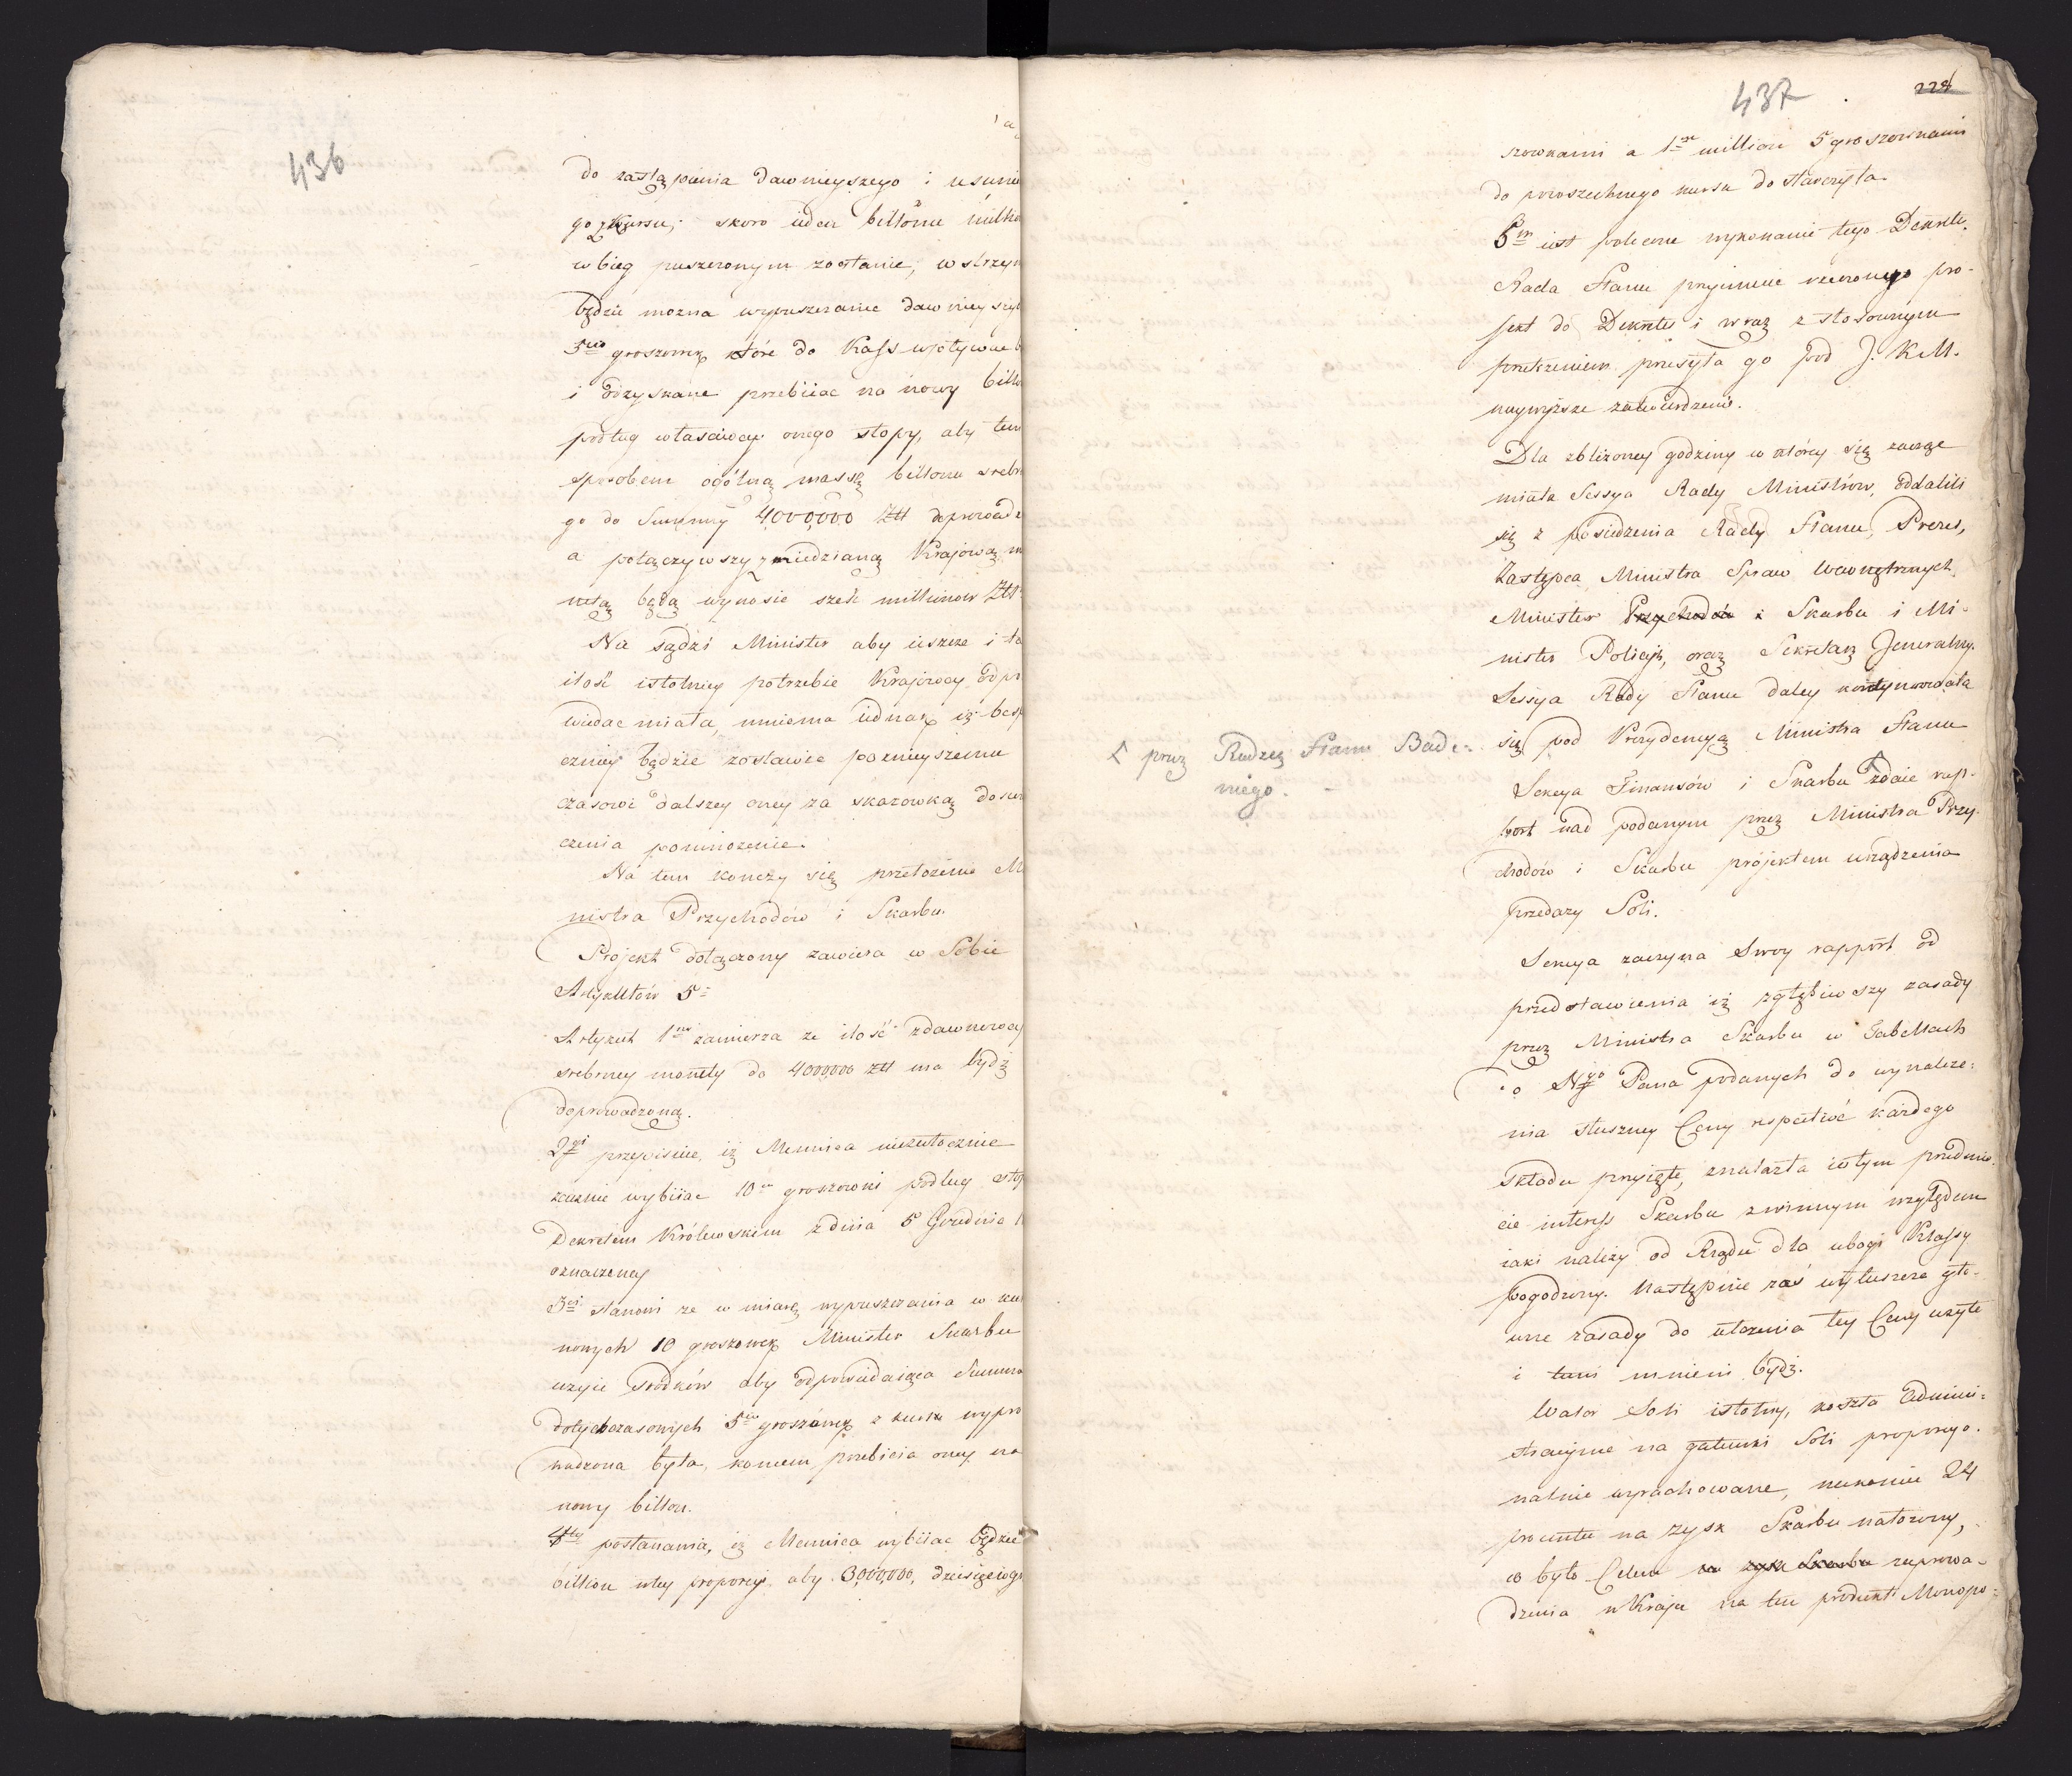 436
do zastąpienia dawnieyszego i usunie
go z kursu; skoro ieden billonu millio
w bieg puszczonym zostanie, wstrzym
będzie można wypuszczanie dawnieyszyc
5cio groszowek które do Kass wpływac b
i odzyskane przebiiac na nowy billo
podług własciwey onego stopy, aby tem
sposobem ogólną massę billonu srebr
go do Summy 4,000,000 Złł doprowadz
a połączywszy z miedzianą Krajową m
netą będą wynosic sześć millionow Złł
Nie sądzi Minister aby ieszcze i ta
ilość istotney potrzebie Krajowey odpo
wiedac miała, mniema iednak iż besp
czniey będzie zostawic poznieyszemu
czasowi dalszey oney za skazowką dosw
czenia pomnożenie.
Na tem konczy się przełożenie Mi
nistra Przychodów i Skarbu.
Projekt dołączony zawiera w Sobie
Artykułów 5:
Artykuł 1ny zamierza ze ilość zdawkowey
srebrney monety do 4000,000 złł ma bydź
doprowadzoną.
2gi przepisuie, iż Mennica niezwłocznie
zacznie wybiiac 10cio groszowki podług stop
Dekretem Królewskim z dnia 5 Grudnia 1
oznaczoney
3ci stanowi ze w miarę wypuszczania w kur
nowych 10 groszowek Minister Skarbu
użyie srodków aby odpowiadaiąca Summa
dotychczasowych 5cio groszówek z kursu wypro
wadzona była, koncem przebicia oney na
nowy billon.
4ty postanawia, iż Mennica wybiiac będzie
billion w tey proporcyi aby 3,000,000, dziesięciogr
437
228
szowkami a 1en million 5 groszowkami
do powszechnego kursu dostarczyła.
5m iest polecone wykonanie tego Dekretu.
Rada Stanu przyimuie rzeczonego pro-
jekt do Dekretu i wraz z stosownym
przełożeniem przesyła go pod J. K M.
naywyższe zatwierdzenie.
Dla zbliżoney godziny w którey się zacząc
miała Sessya Rady Ministrow, oddalili
się z posiedzenia Rady Stanu, Prezes,
Zastępca Ministra Spraw Wewnętrznych,
Minister Przychodów i Skarbu i Mi-
nister Policyi, oraz Sekretarz Jeneralny.
Sessya Rady Stanu daley kontynuowała
się pod Prezydencyą Ministra Stanu
Sekcya Finansów i Skarbu zdaie rap-
port nad podanym przez Ministra Przy-
chodów i Skarbu projektem urządzenia
przedaży Soli.
przez Radzcę Stanu Bade-
niego.
Sekcya zaczyna Swoy rapport od
przedstawienia iż zgłębiwszy zasady
przez Ministra Skarbu w Tabellach
do Nygo Pana podanych do wynalezie-
nia słuszney Ceny respective każdego
Składu przyięte, znalazła w tym przedmio-
cie interess Skarbu z winnym względem
iaki należy od Rządu dla ubogi Klassy
pogodzony. Następnie zaś wyłuszcza głó-
wne zasady do ułożenia tey Ceny użyte
i temi mnieni bydz.
Walor Soli istotny, koszta Admini-
stracyjne na gatunki Soli proporcyo-
nalnie wyrachowane, nakoniec 24
procentu na zysk Skarbu nałożony,
co było Celem na zysk Skarbu zaprowa-
dzenia w Kraju na ten produkt Monopo-